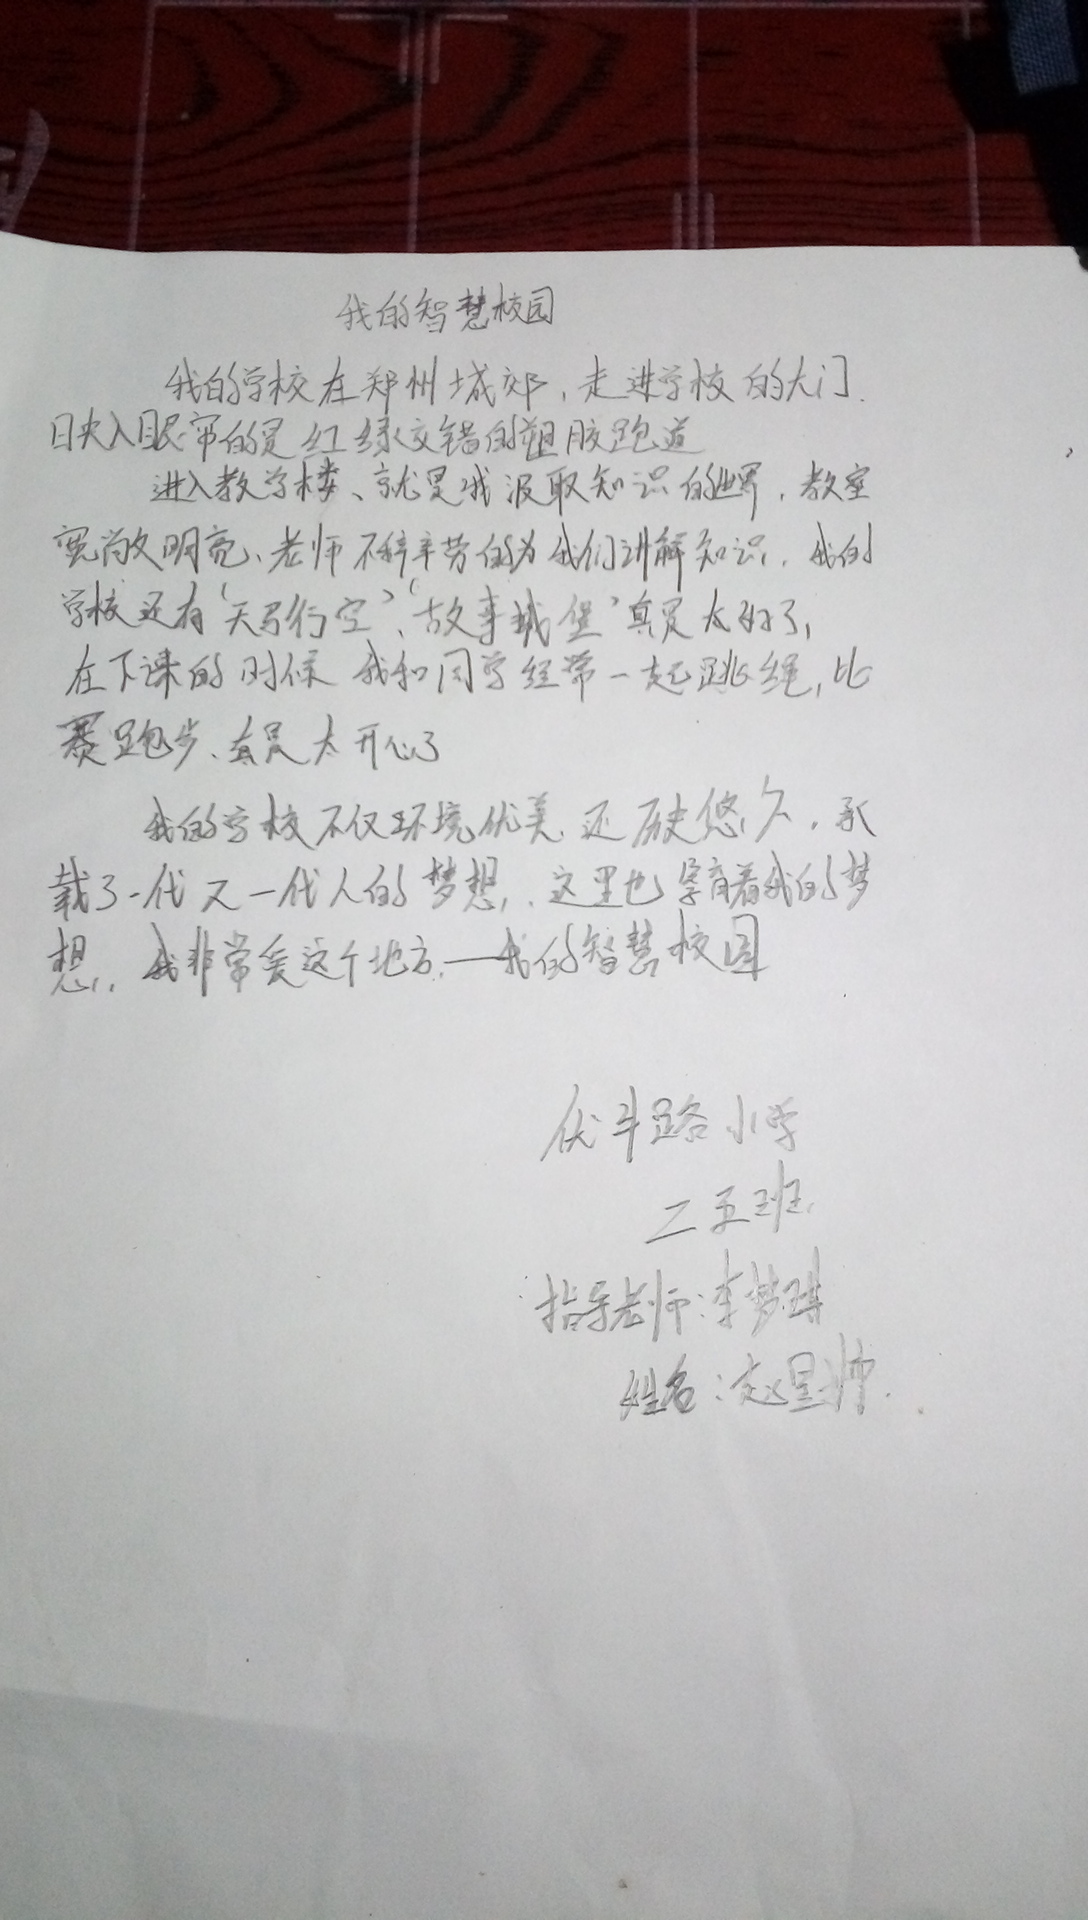 我的智慧校园
我的学校在郑州城郊，走进学校的大门.
映入眼帘的是红绿交错的塑胶跑道
进入教学楼、就是我汲取知识的世界，教室
宽敞明亮、老师不辞辛劳的为我们讲解知识，我的
学校还有“天马行空”、“故事城堡”真是太好了，
在下课的时候 我和同学经常一起跳绳，比
赛跑步、真是太开心了
我的学校不仅环境优美、还历史悠久，承
载了一代又一代人的梦想，这里也孕育着我的梦
想，我非常爱这个地方.——我的智慧校园
伏牛路小学
二五班
指导老师：李梦琪
姓名：赵星帅.